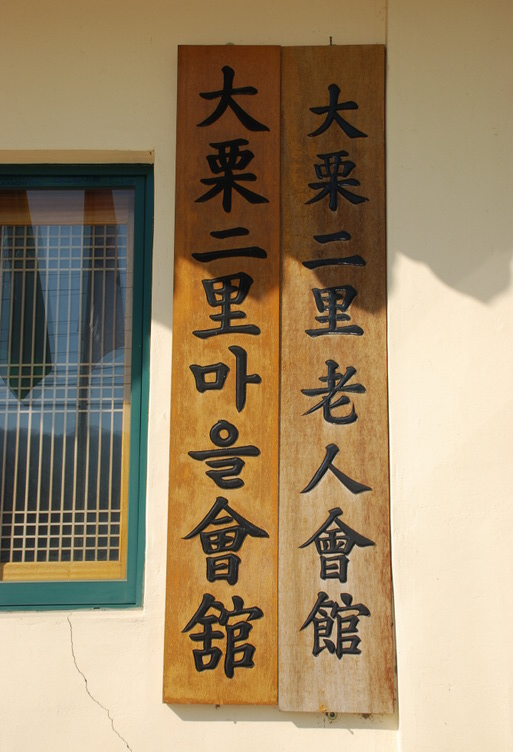 大栗二里마을會舘
大栗二里老人會館